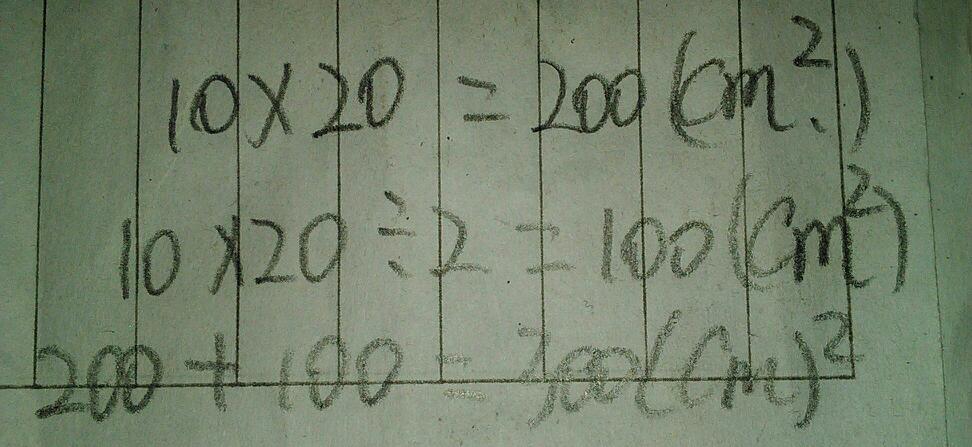 10×20=200(cm².)
10×20÷2=100(cm²)
200+100=300(cm)²